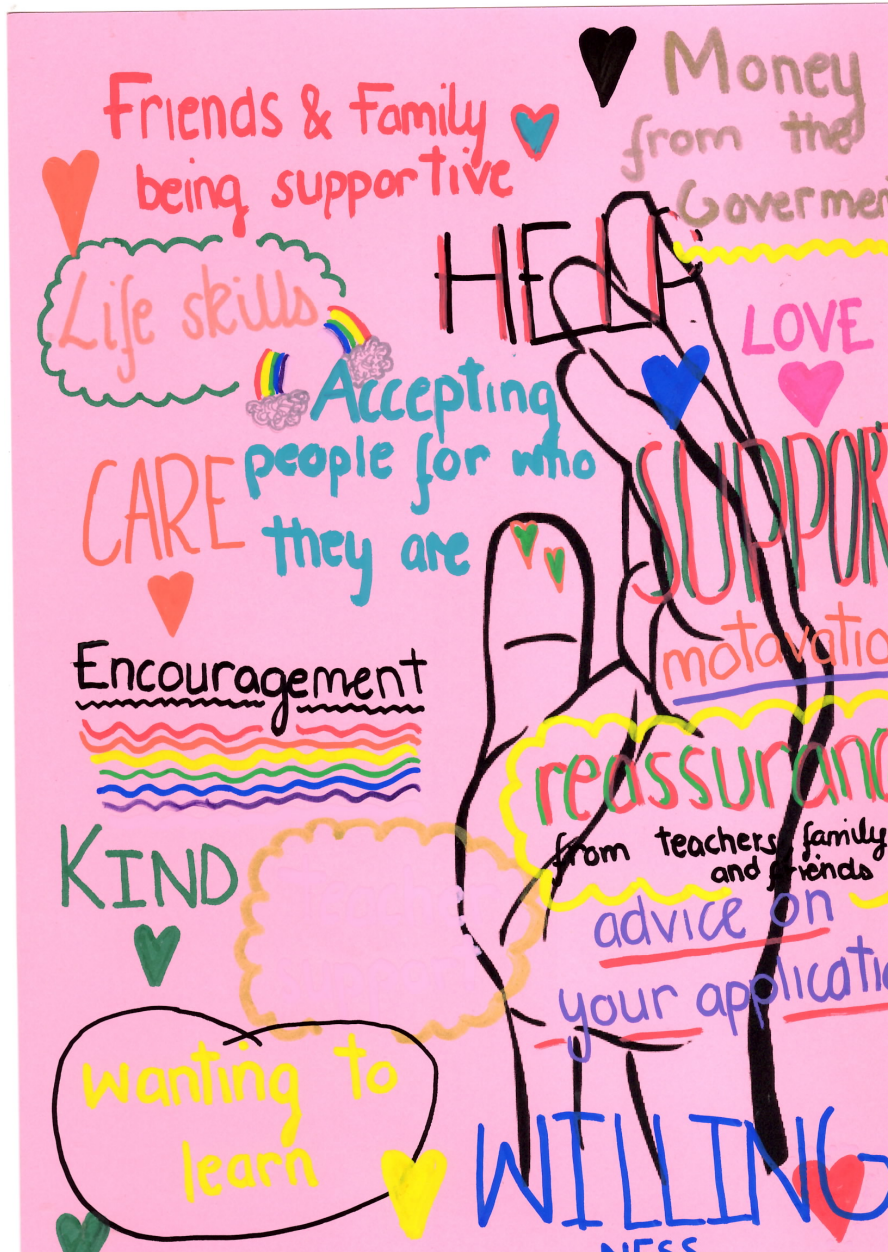 Friends & Family
being supportive
Money
from the
Govermen
HELP
Life skills
LOVE
Accepting
people for who
they are
CARE
SUPPORT
motavatio
Encouragement
reassuranc
from teachers, family
and friends
KIND
teacher
support
advice on
your applicatio
wanting to
learn
WILLING
NESS